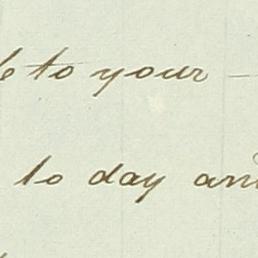 to your -
to day and